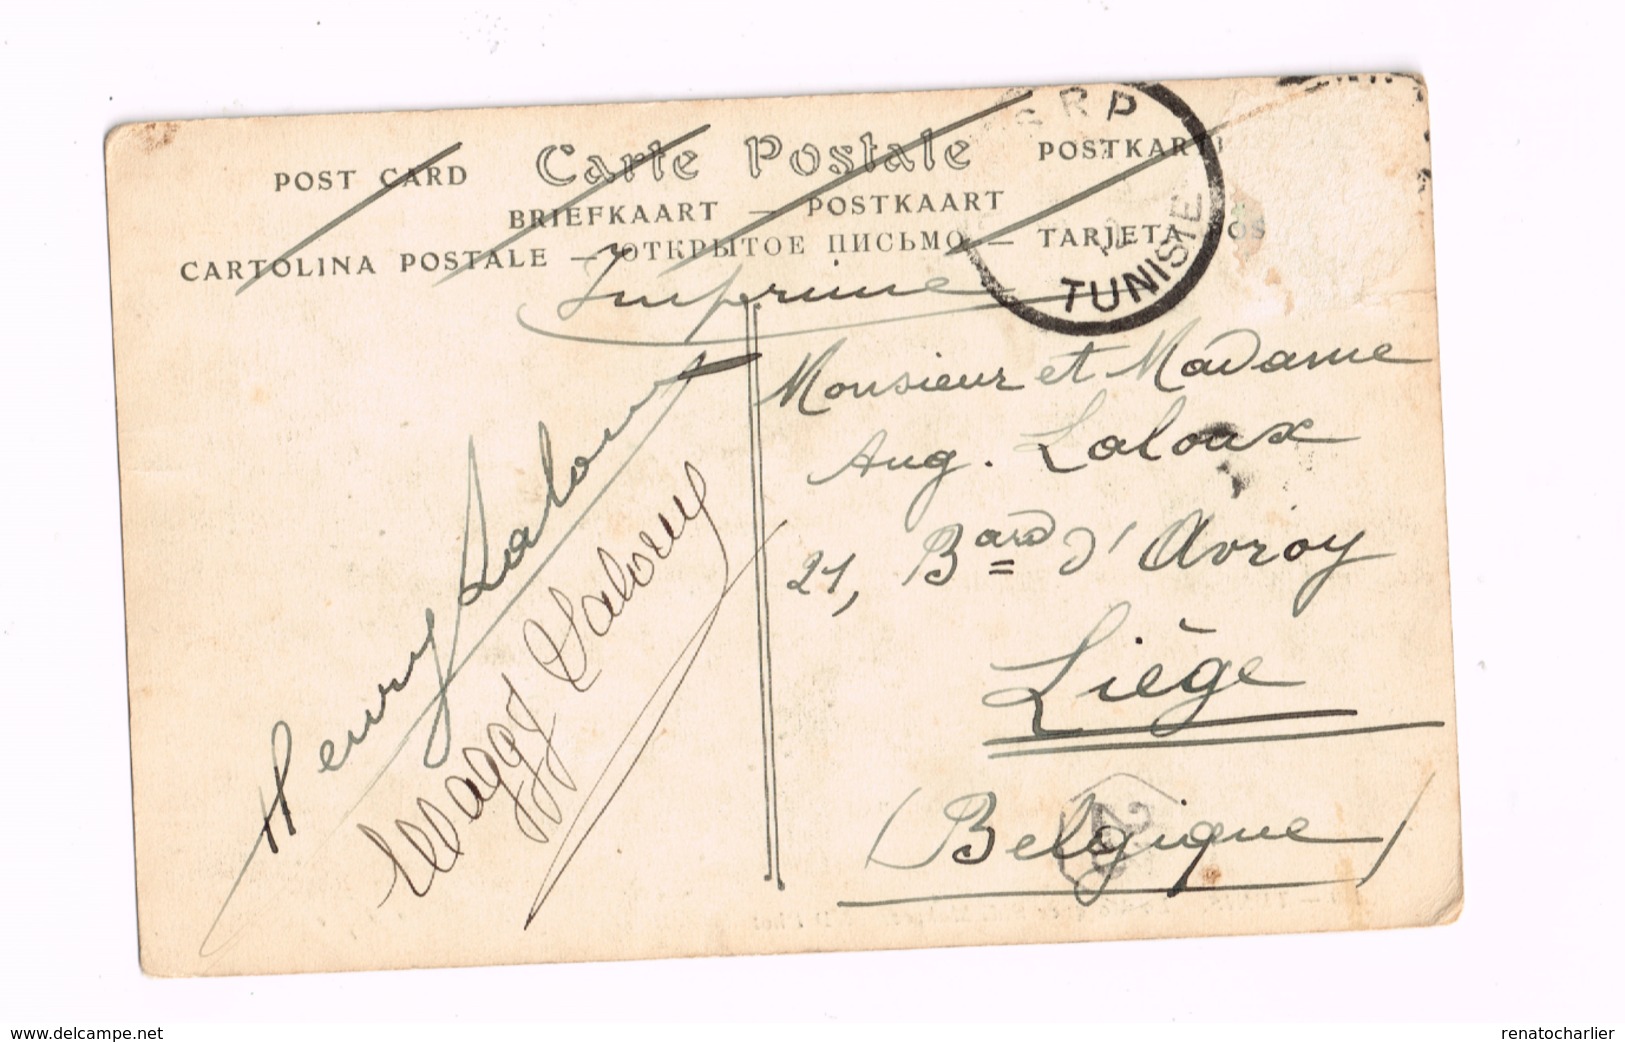 POST CARD Carte Postale POSTKARTE
BRIEFKAART — POSTKAART
CARTOLINA POSTALE — ОТКРЫТОЕ ПИСЬМО — TARJETA POS
Imprimé
TUNISIE
Monsieur et Madame
Aug. Laloux
21, Bard d'Avroy
Liège
(Belgique)
Henry
Maggy
www.delcampe.net
renatocharlier